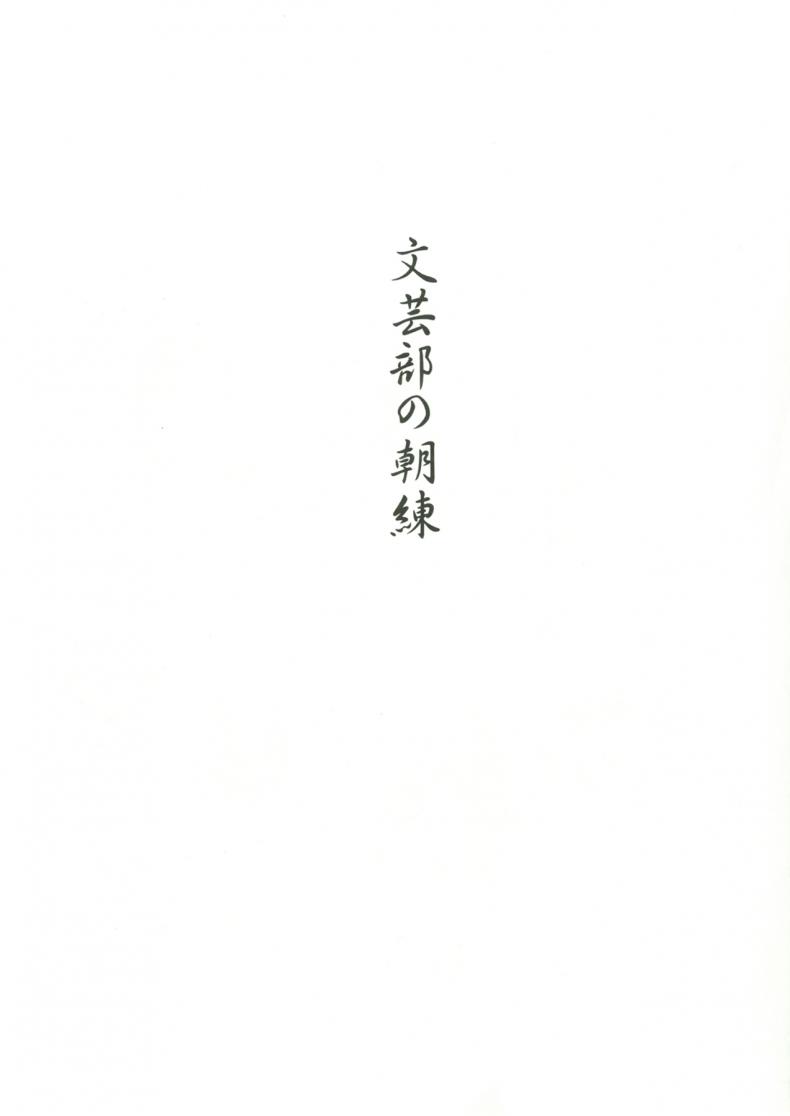 文芸部の朝練